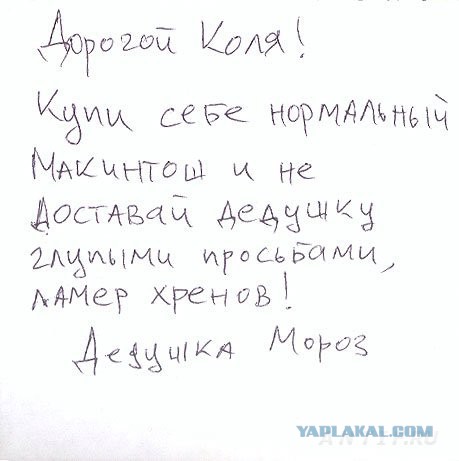 Дорогой Коля!
Купи себе нормальный
Макинтош и не
доставай дедушку
глупыми просьбами,
ламер хренов!
Дедушка Мороз
YAPLAKAL.COM